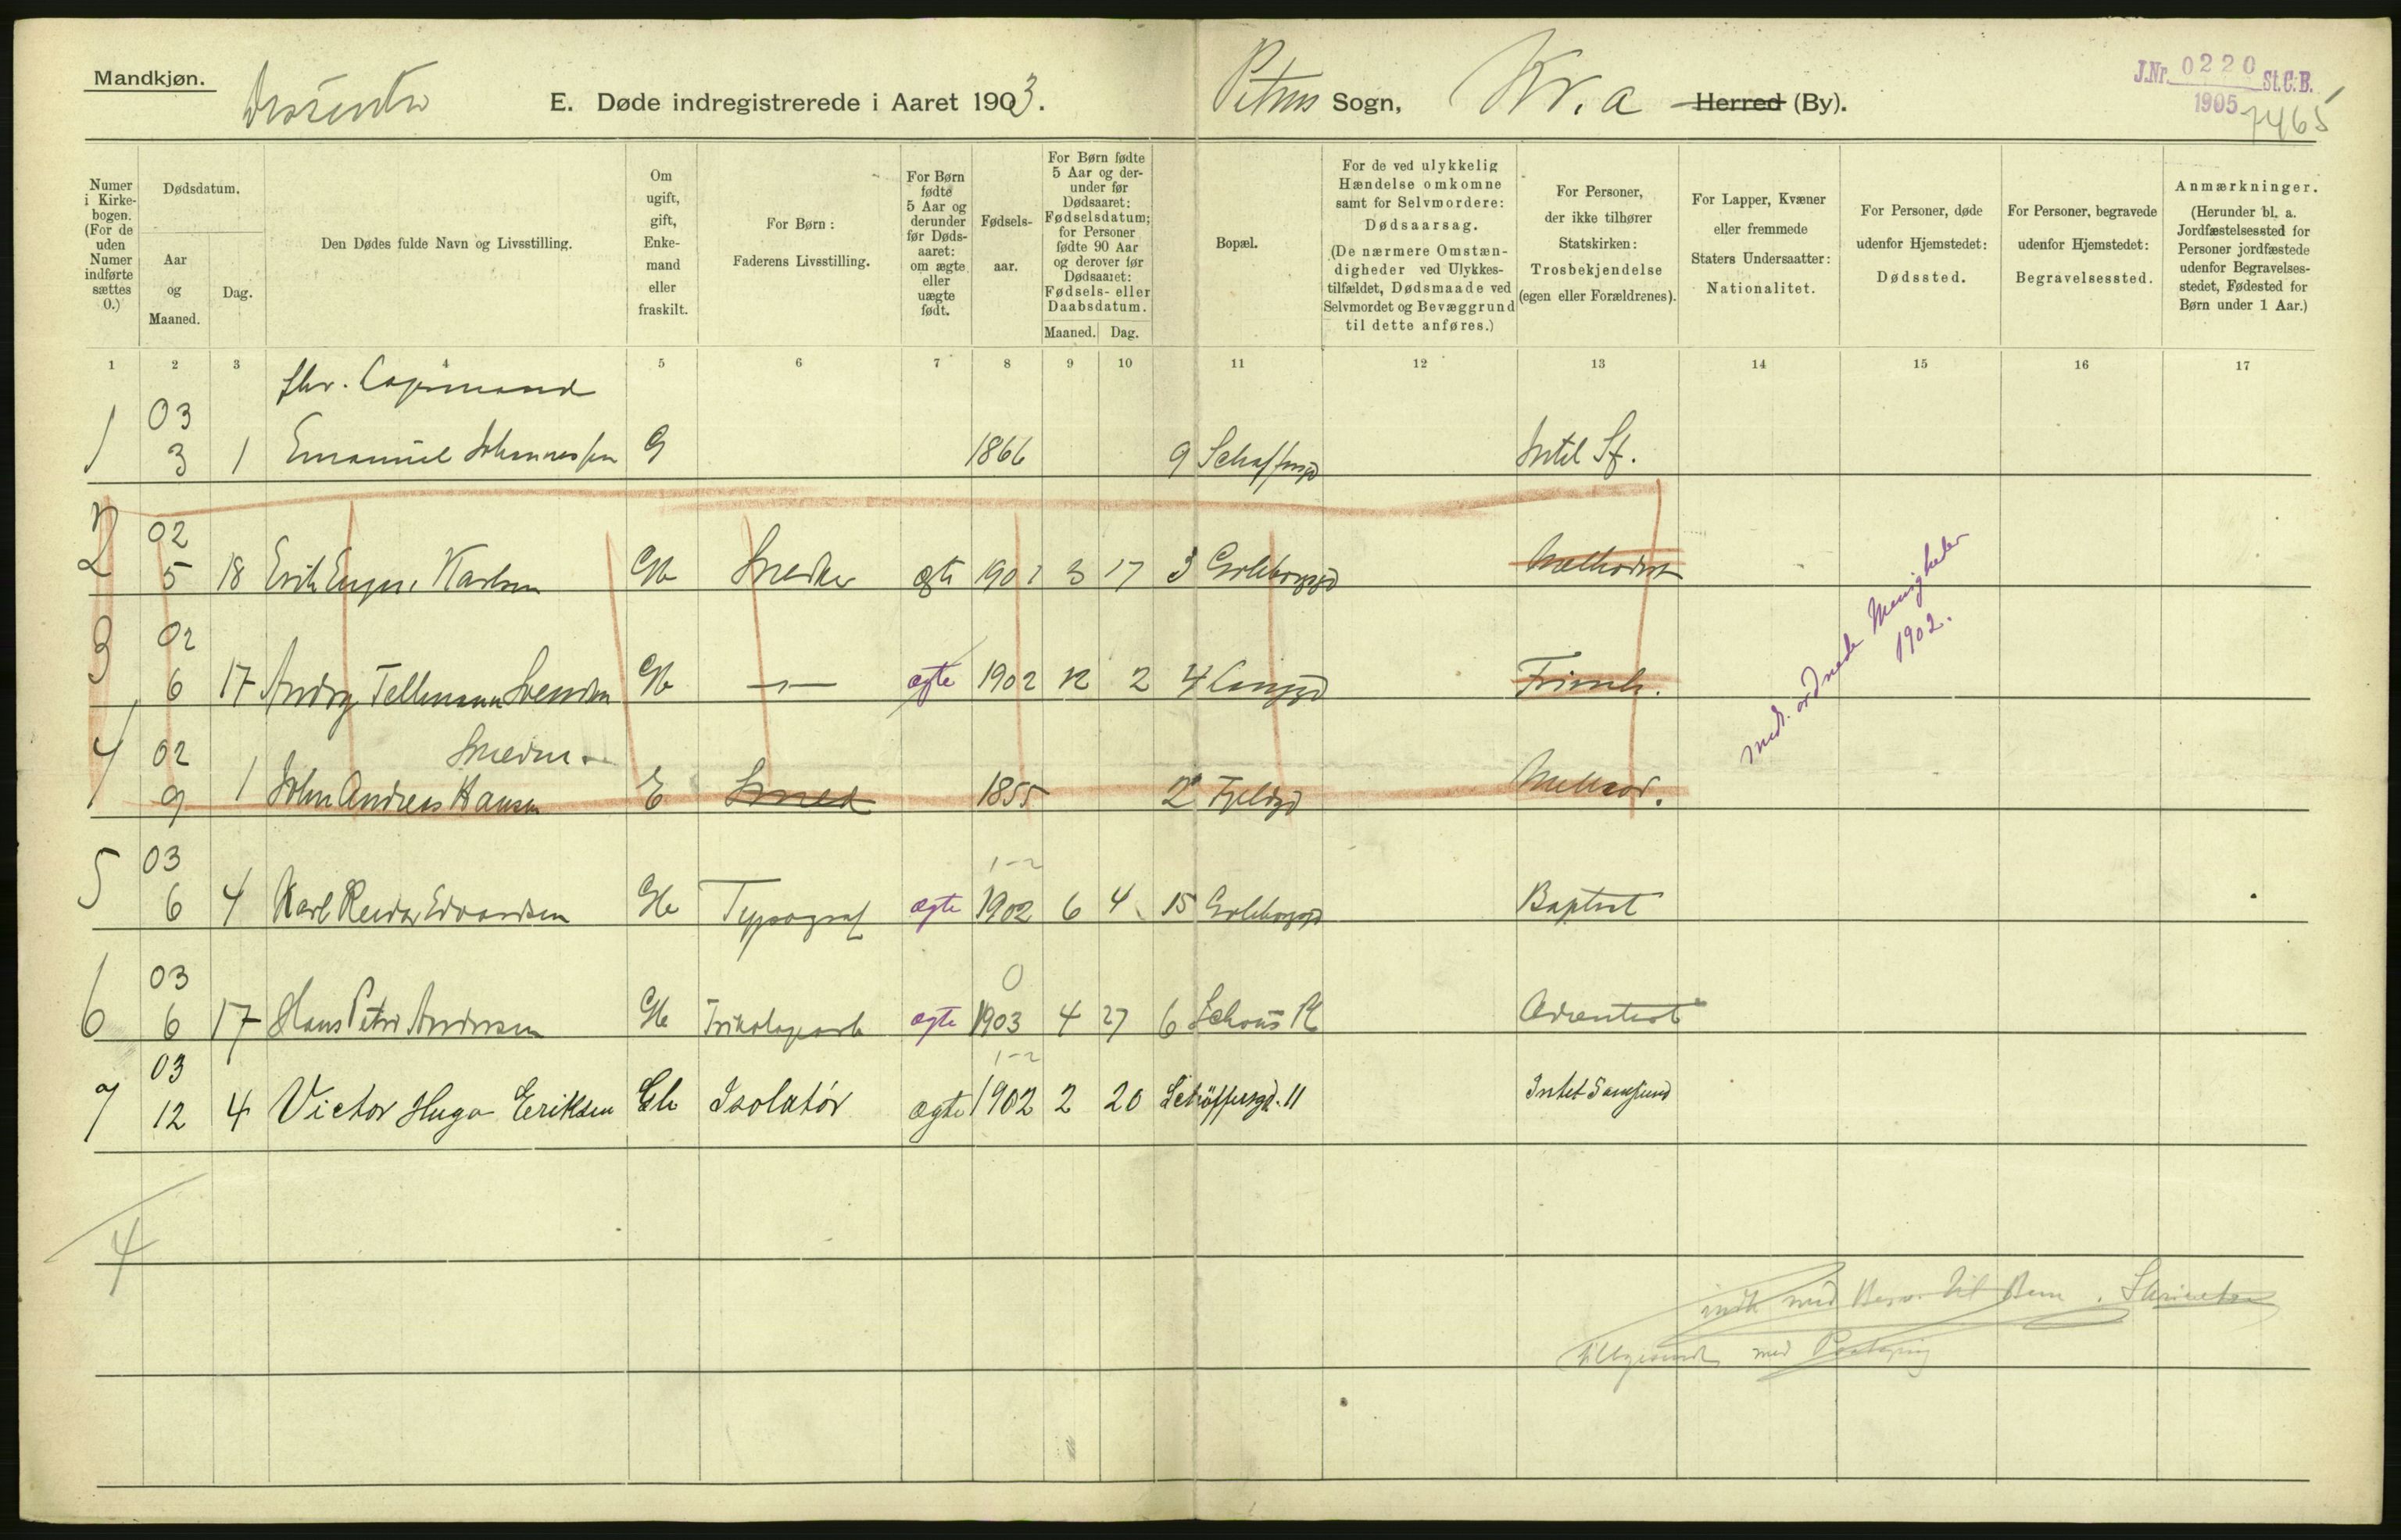 Mandkjøn.
E. Døde indregistrerede i Aaret 1903.
Petrus Sogn, Kr.a Herred (By).
J.Nr. 0220 St.C.B.
1905
7465
Numer i Kirkebogen. (For de uden Numer indførte sættes 0.)
Dødsdatum.
Aar og Maaned.
Dag.
Den Dødes fulde Navn og Livsstilling.
Om ugift, gift, Enkemand eller fraskilt.
For Børn: Faderens Livsstilling.
For Børn fødte 5 Aar og derunder før Dødsaaret: om ægte eller uægte født.
Fødselsaar.
For Børn fødte 5 Aar og derunder før Dødsaaret: Fødselsdatum; for Personer fødte 90 Aar og derover før Dødsaaret: Fødsels- eller Daabsdatum.
Maaned. Dag.
Bopæl.
For de ved ulykkelig Hændelse omkomne samt for Selvmordere: Dødsaarsag. (De nærmere Omstændigheder ved Ulykkestilfældet, Dødsmaade ved Selvmordet og Bevæggrund til dette anføres.)
For Personer, der ikke tilhører Statskirken: Trosbekjendelse (egen eller Forældrenes).
For Lapper, Kvæner eller fremmede Staters Undersaatter: Nationalitet.
For Personer, døde udenfor Hjemstedet: Dødssted.
For Personer, begravede udenfor Hjemstedet: Begravelsessted.
Anmærkninger. (Herunder bl. a. Jordfæstelsessted for Personer jordfæstede udenfor Begravelsesstedet, Fødested for Børn under 1 Aar.)
1 2 3 4 5 6 7 8 9 10 11 12 13 14 15 16 17
03
1 3 1 Emanuel Johannessen G 1866 9 Intet Sf.
02
2 5 18 Erik Karlsen Snedker ægte 1901 3 17 3 Gøteborggd Methodist
02
3 6 17 Svendsen ægte 1902 12 2 4 Langgd Frimeh.
02
4 9 1 John Andreas Hansen E Smed 1855 2 Fjeldgd Methood.
indt. ordnede Menigheder
1902.
03 1-2
5 6 4 Karl Reidar Edvardsen Typograf ægte 1902 6 4 15 Gøteborggd Baptist
03 0
6 6 17 Hans Petri Andersen Trikotagearb ægte 1903 4 27 6 Schous Pl Adventist
03 1-2
7 12 4 Victor Hugo Eriksen Isolatör ægte 1902 2 20 Schöffersgd. 11 Intet Samfund
4
med